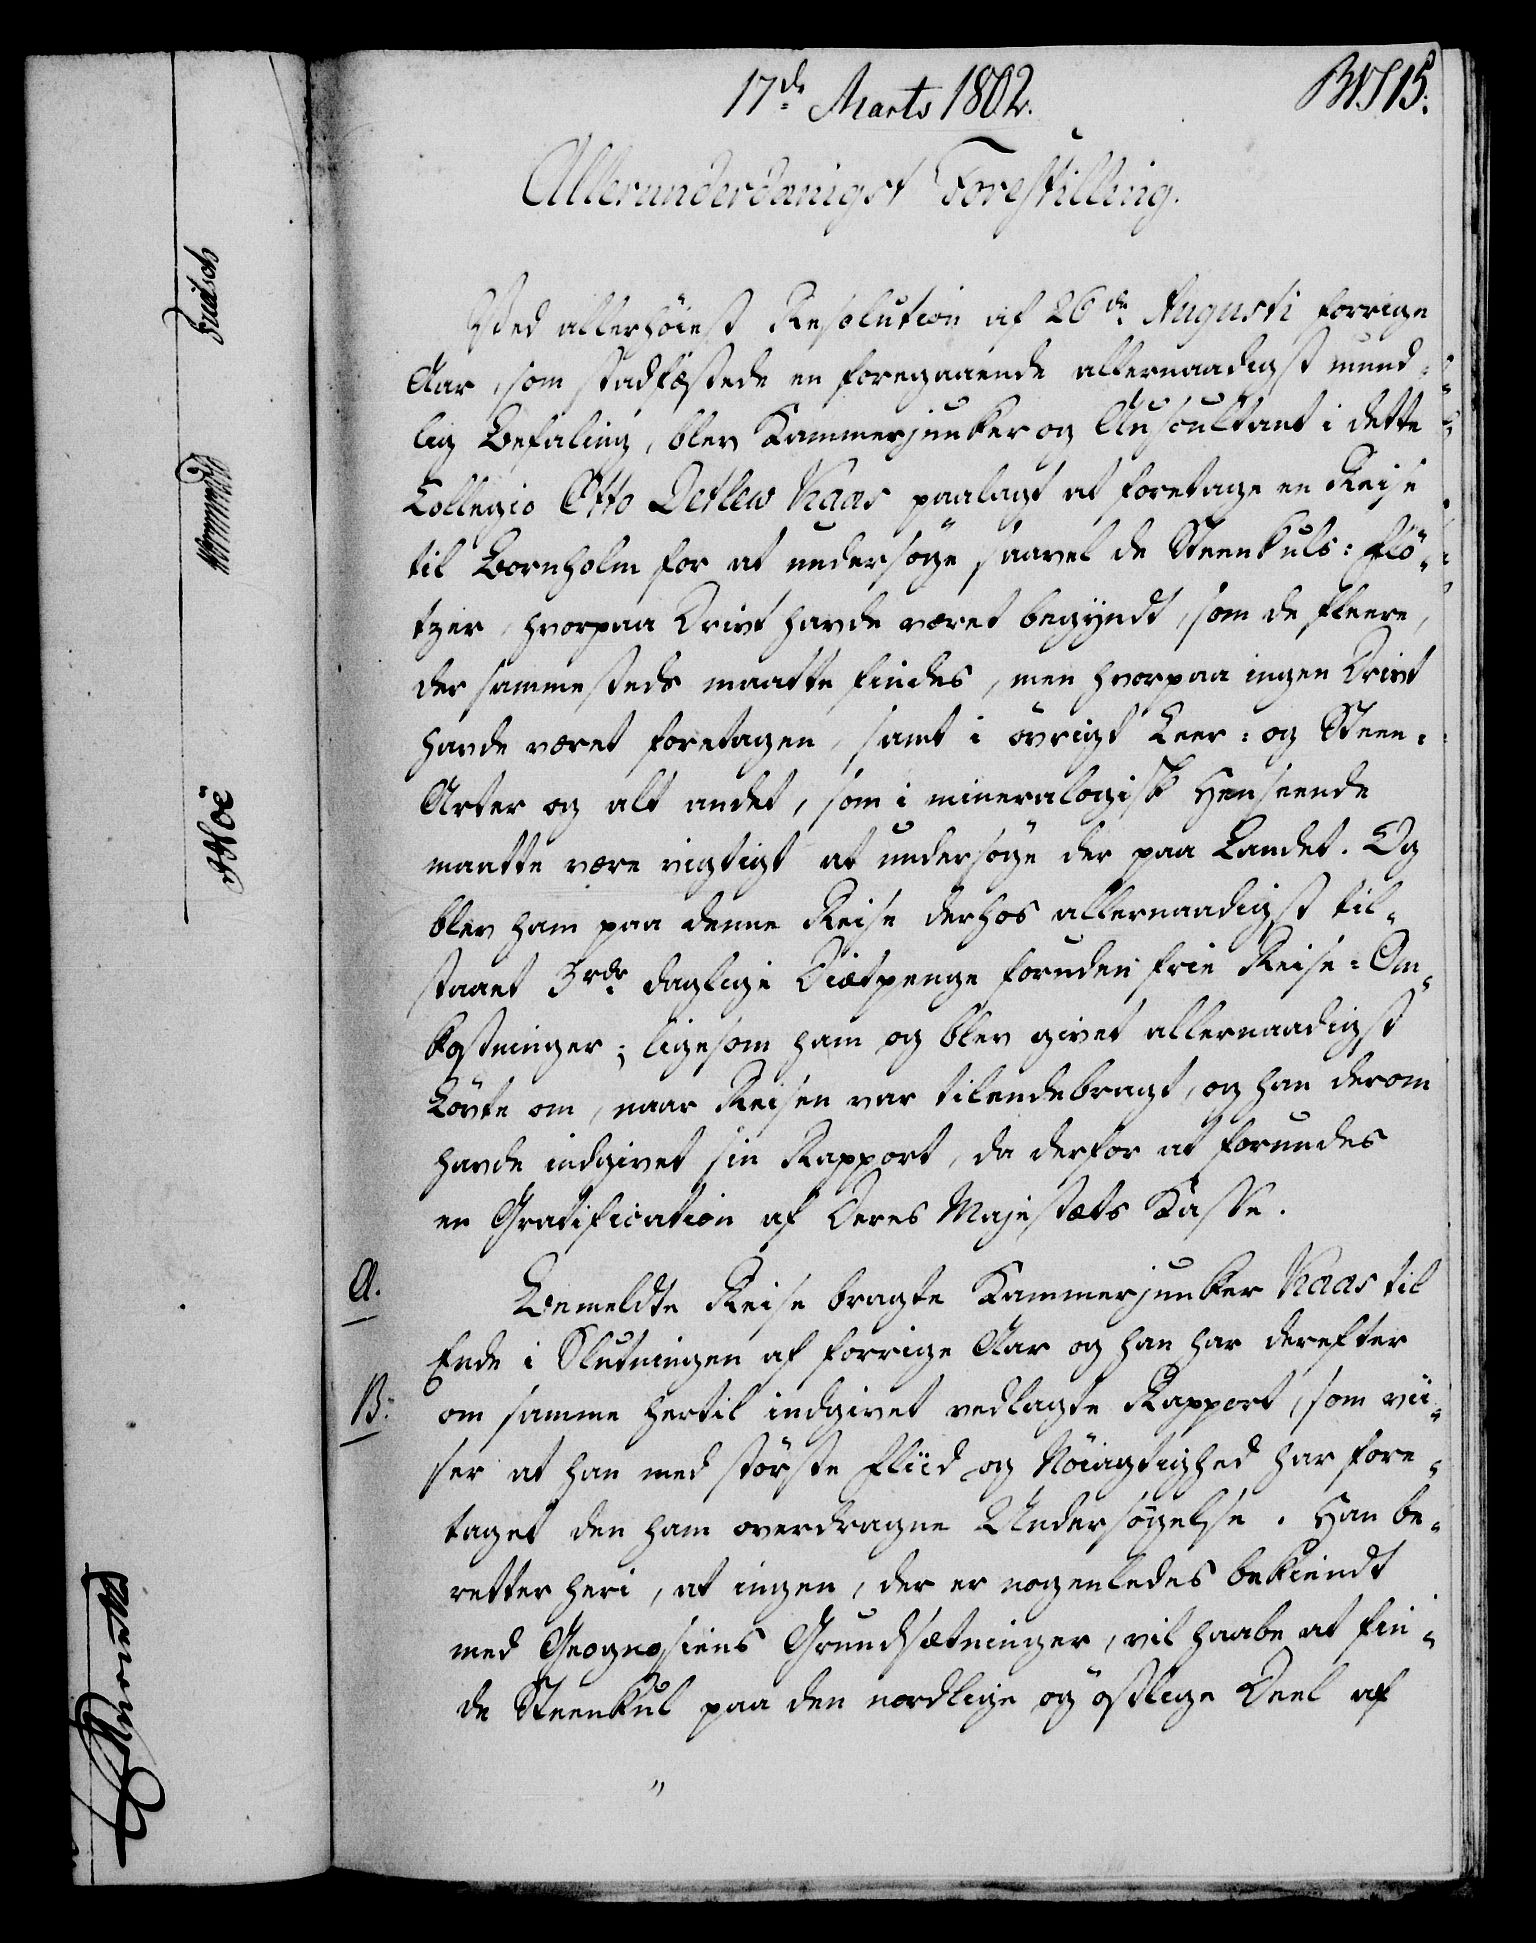 17de Marts 1802.
Allerunderdanigst Forestilling.
Ved allerhöiest Resolution af 26de Augusti forrige
Aar, som stadfæstede en foregaaende allernaadigst mund-
lig Befaling, blev Kammerjunker og Auscultant i dette
Collegio Otto Detlew Kaas paalagt at foretage en Reise
til Bornholm for at undersöge saavel de Steenkuls: Flö-
tzer, hvorpaa Drivt havde været begyndt, som de fleere,
der sammesteds maatte findes, men hvorpaa ingen Drivt
havde været foretagen, samt i övrigt Leer: og Steen-
Arter og alt andet, som i mineralogisk Henseende
maatte være vigtigt at undersöge der paa Landet. Og
blev ham paa denne Reise derhos allernaadigst til-
staaet 3 rdr daglige Diætpenge foruden frie Reise-Om-
kostninger; ligesom ham og blev givet allernaadigst
Lövte om, naar Reisen var tilendebragt, og han derom
havde indgivet sin Rapport, da derfor at forundes
en Gratification af Deres Majestæts Kasse.
A.
Bemeldte Reise bragte Kammerjunker Kaas til
Ende i Slutningen af forrige Aar og han har derefter
B:
om samme hertil indgivet vedlagte Rapport, som vii-
ser at han med störste Fliid og Nöiagtighed har fore-
taget den ham overdragne Undersögelse. Han be-
retter heri, at ingen, der er nogenledes bekiendt
med Geognosiens Grundsætninger, vil haabe at fin-
de Steenkul paa den nordlige og östlige Deel af